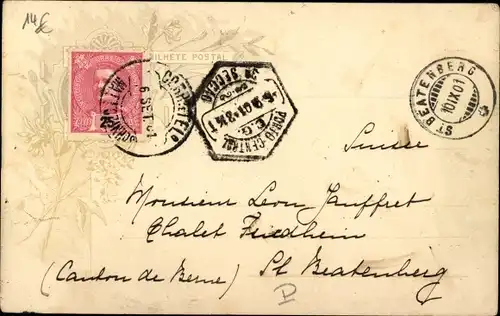 14 €
BILHETE POSTAL
CORREIO
6 SET 01
3ª SECÇÃO
6.9.01-3 T
E.G.
PORTO-CENTRAL
ST BEATENBERG
10 IX 01
Suisse
Monsieur Leon Jauffret
Chalet Friedheim
(Canton de Berne) St. Beatenberg
D